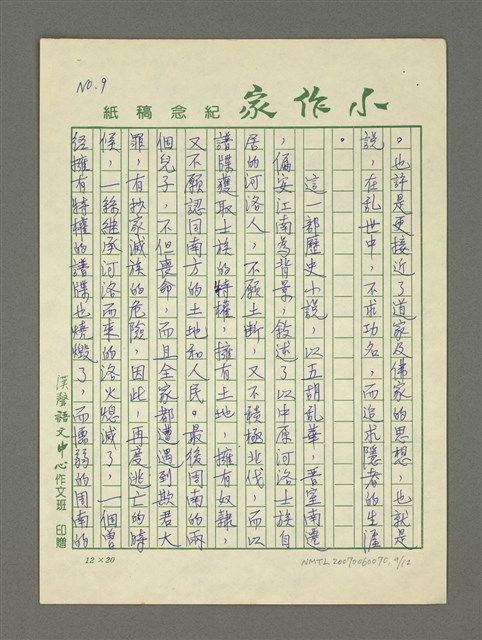 NO. 9
小作家紀念稿紙
。也許是更接近了道家及佛家的思想，也就是
說，在亂世中，不求功名，而追求隱者的生涯
。
這一部歷史小說，以五胡亂華，晋室南遷
，偏安江南為背景，敘述了以中原河洛士族自
居的河洛人，不願土断，又不積極北伐，而以
譜牒獲取士族的特權，擁有土地，擁有奴隸，
又不願認同南方的土地和人民。最後周南的兩
個兒子，不但喪命，而且全家都遭遇到欺君大
罪，有抄家滅族的危險，因此，再度逃亡的時
候，一絲継承河洛而來的洛火熄滅了，一個曾
經擁有特權的譜牒也燒燬了，而懦弱的周南的
漢聲語文中心作文班 印贈
12×20
NMTL20070060070, 9/12